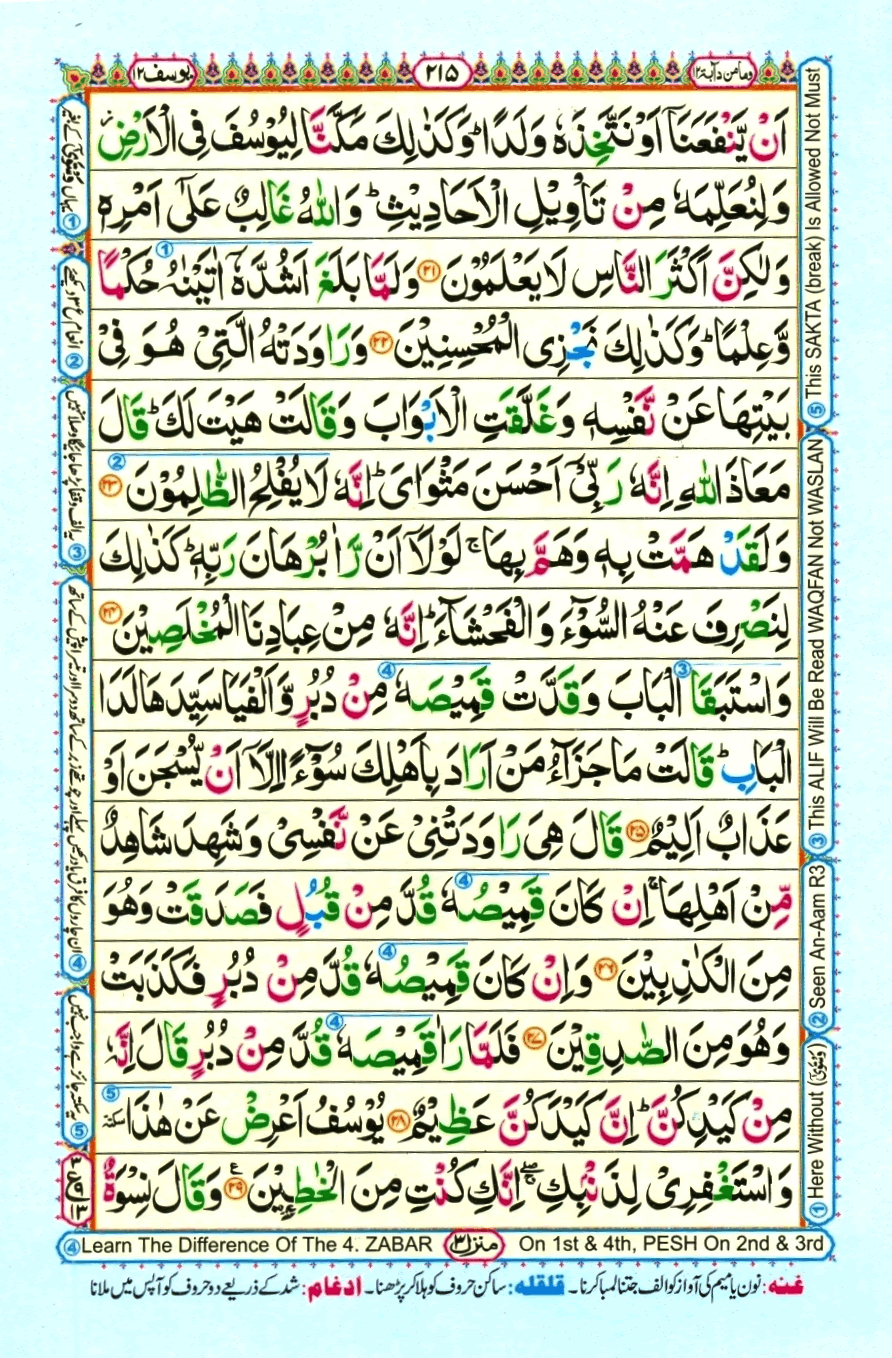 يوسف ١٢
٢١٥
وما من دآبة ١٢
اَنْ يَّنْفَعَنَاۤ اَوْ نَتَّخِذَهٗ وَلَدًا ؕ وَكَذٰلِكَ مَكَّنَّا لِيُوْسُفَ فِى الْاَرْضِ ۫
وَلِنُعَلِّمَهٗ مِنْ تَاْوِيْلِ الْاَحَادِيْثِ ؕ وَاللّٰهُ غَالِبٌ عَلٰۤى اَمْرِهٖ
وَلٰكِنَّ اَكْثَرَ النَّاسِ لَا يَعْلَمُوْنَ ۲۱ وَلَمَّا بَلَغَ اَشُدَّهٗۤ اٰتَيْنٰهُ حُكْمًا
وَّعِلْمًا ؕ وَكَذٰلِكَ نَجْزِى الْمُحْسِنِيْنَ ۲۲ وَرَاوَدَتْهُ الَّتِىْ هُوَ فِىْ
بَيْتِهَا عَنْ نَّفْسِهٖ وَغَلَّقَتِ الْاَبْوَابَ وَقَالَتْ هَيْتَ لَكَ ؕ قَالَ
مَعَاذَ اللّٰهِ اِنَّهٗ رَبِّىْۤ اَحْسَنَ مَثْوَاىَ ؕ اِنَّهٗ لَا يُفْلِحُ الظّٰلِمُوْنَ ۲۳
وَلَقَدْ هَمَّتْ بِهٖ وَهَمَّ بِهَا ۚ لَوْلَاۤ اَنْ رَّاٰ بُرْهَانَ رَبِّهٖ ؕ كَذٰلِكَ
لِنَصْرِفَ عَنْهُ السُّوْٓءَ وَالْفَحْشَآءَ ؕ اِنَّهٗ مِنْ عِبَادِنَا الْمُخْلَصِيْنَ ۲۴
وَاسْتَبَقَا الْبَابَ وَقَدَّتْ قَمِيْصَهٗ مِنْ دُبُرٍ وَّاَلْفَيَا سَيِّدَهَا لَدَا
الْبَابِ ؕ قَالَتْ مَا جَزَآءُ مَنْ اَرَادَ بِاَهْلِكَ سُوْٓءًا اِلَّاۤ اَنْ يُّسْجَنَ اَوْ
عَذَابٌ اَلِيْمٌ ۲۵ قَالَ هِىَ رَاوَدَتْنِىْ عَنْ نَّفْسِىْ وَشَهِدَ شَاهِدٌ
مِّنْ اَهْلِهَا ۚ اِنْ كَانَ قَمِيْصُهٗ قُدَّ مِنْ قُبُلٍ فَصَدَقَتْ وَهُوَ
مِنَ الْكٰذِبِيْنَ ۲۶ وَاِنْ كَانَ قَمِيْصُهٗ قُدَّ مِنْ دُبُرٍ فَكَذَبَتْ
وَهُوَ مِنَ الصّٰدِقِيْنَ ۲۷ فَلَمَّا رَاٰ قَمِيْصَهٗ قُدَّ مِنْ دُبُرٍ قَالَ اِنَّهٗ
مِنْ كَيْدِكُنَّ ؕ اِنَّ كَيْدَكُنَّ عَظِيْمٌ ۲۸ يُوْسُفُ اَعْرِضْ عَنْ هٰذَا سكتة
وَاسْتَغْفِرِىْ لِذَنْۢبِكِ ۖۚ اِنَّكِ كُنْتِ مِنَ الْخٰطِـِٕيْنَ ۲۹ وَقَالَ نِسْوَةٌ
⑤ This SAKTA (break) Is Allowed Not Must
③ This ALIF Will Be Read WAQFAN Not WASLAN
② Seen An-Aam R3
① Here Without (وَتَقْوٰى)
② انعام ع ۳ دیکھئے
③ یہ الف وقفاً پڑھا جائیگا وصلاً نہیں
⑤ یہ سکتہ جائز ہے واجب نہیں
④ Learn The Difference Of The 4. ZABAR
منزل ۳
On 1st & 4th, PESH On 2nd & 3rd
غنه: نون یا میم کی آواز کو الف جتنا لمبا کرنا۔ قلقله: ساکن حروف کو ہلا کر پڑھنا۔ ادغام: شد کے ذریعے دو حروف کو آپس میں ملانا